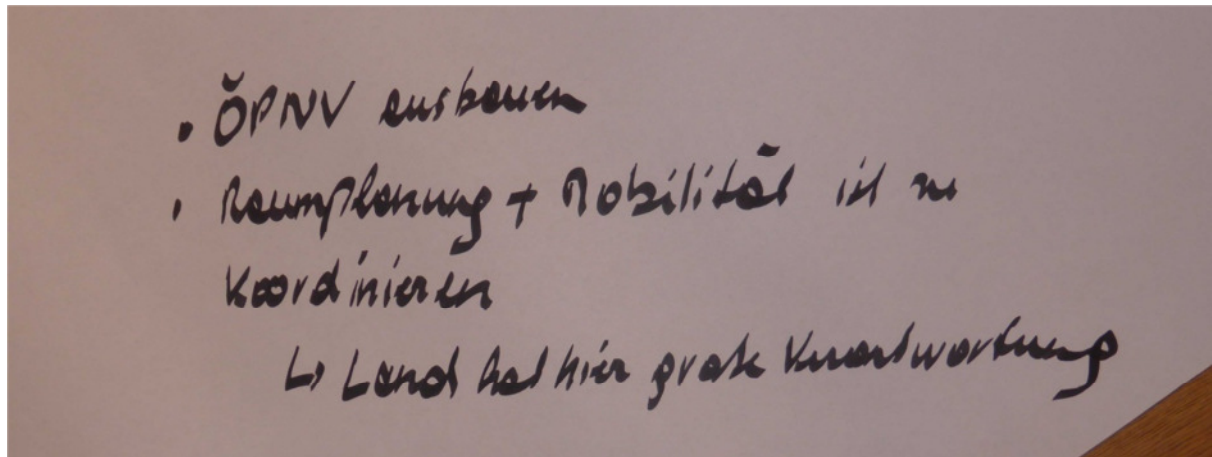 • ÖPNV ausbauen
• Raumplanung + Mobilität ist zu
koordinieren
↳ Land hat hier große Verantwortung